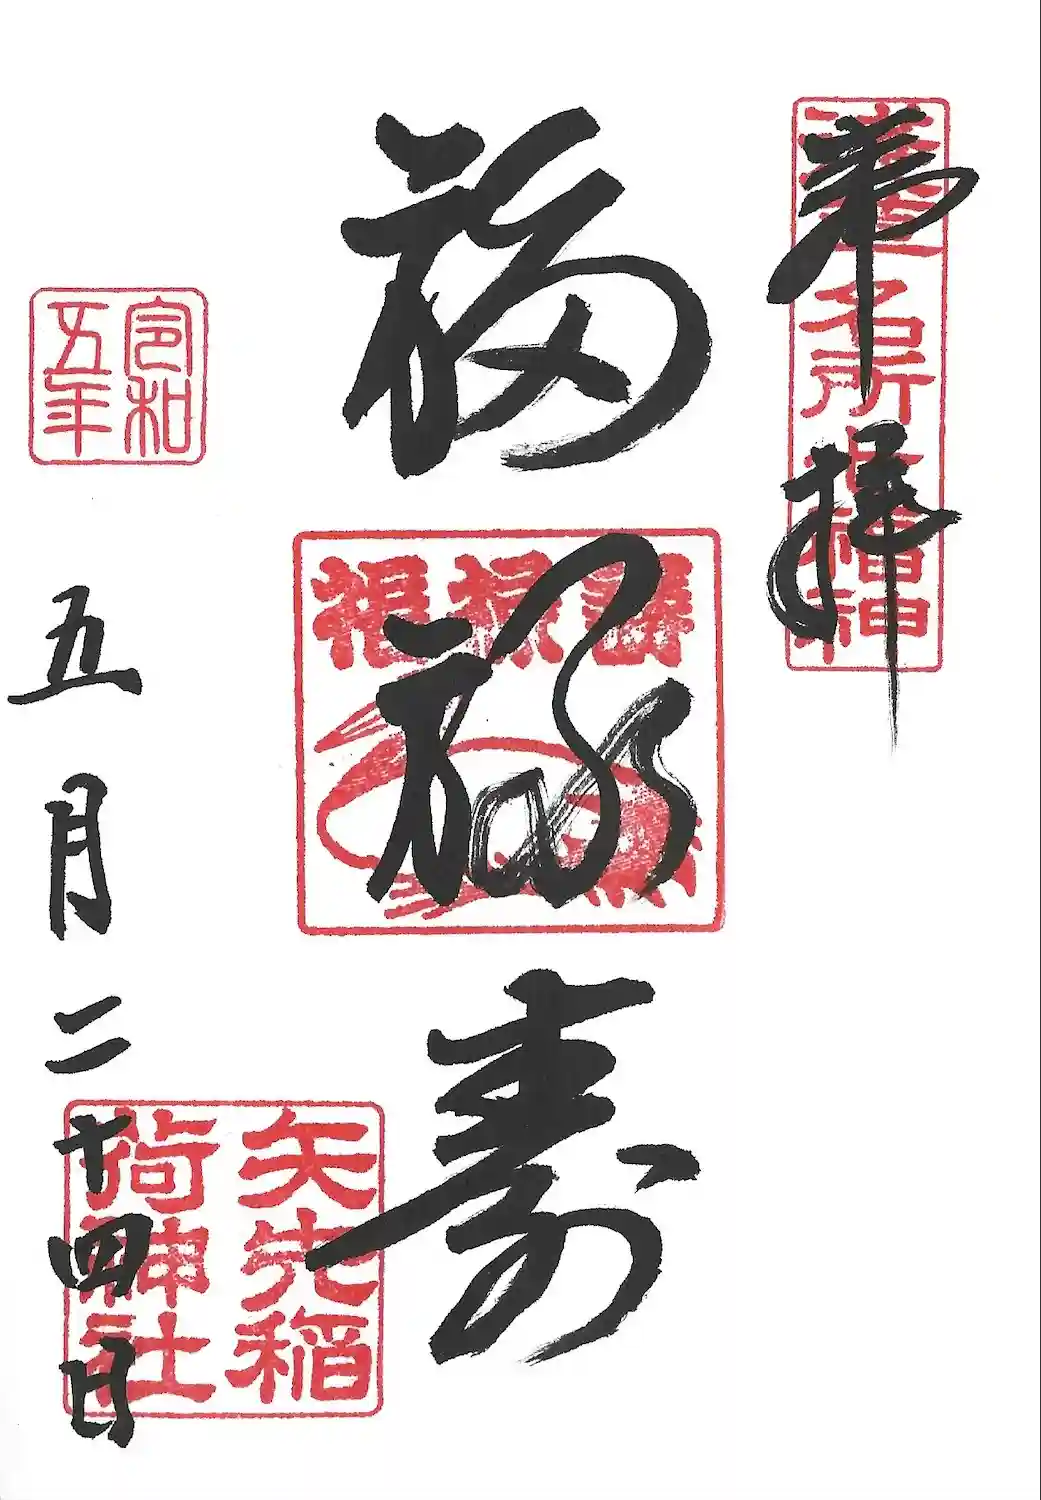 奉拝
名所
福神
福禄寿
令和
五年
五月二十四日
矢先稲
荷神社